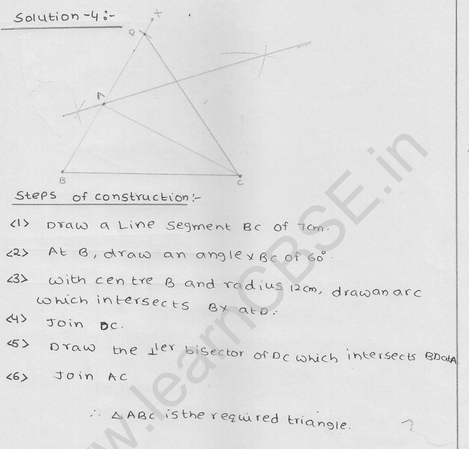 Solution-4:-
X
D
A
B
C
Steps of construction:-
<1> Draw a Line Segment BC of 7cm.
<2> At B, draw an angle XBC of 60°
<3> with centre B and radius 12cm, draw an arc
which intersects BX at D.
<4> Join DC.
<5> Draw the ⊥er bisector of DC which intersects BD at A
<6> Join AC
∴ △ABC is the required triangle.
www.learnCBSE.in